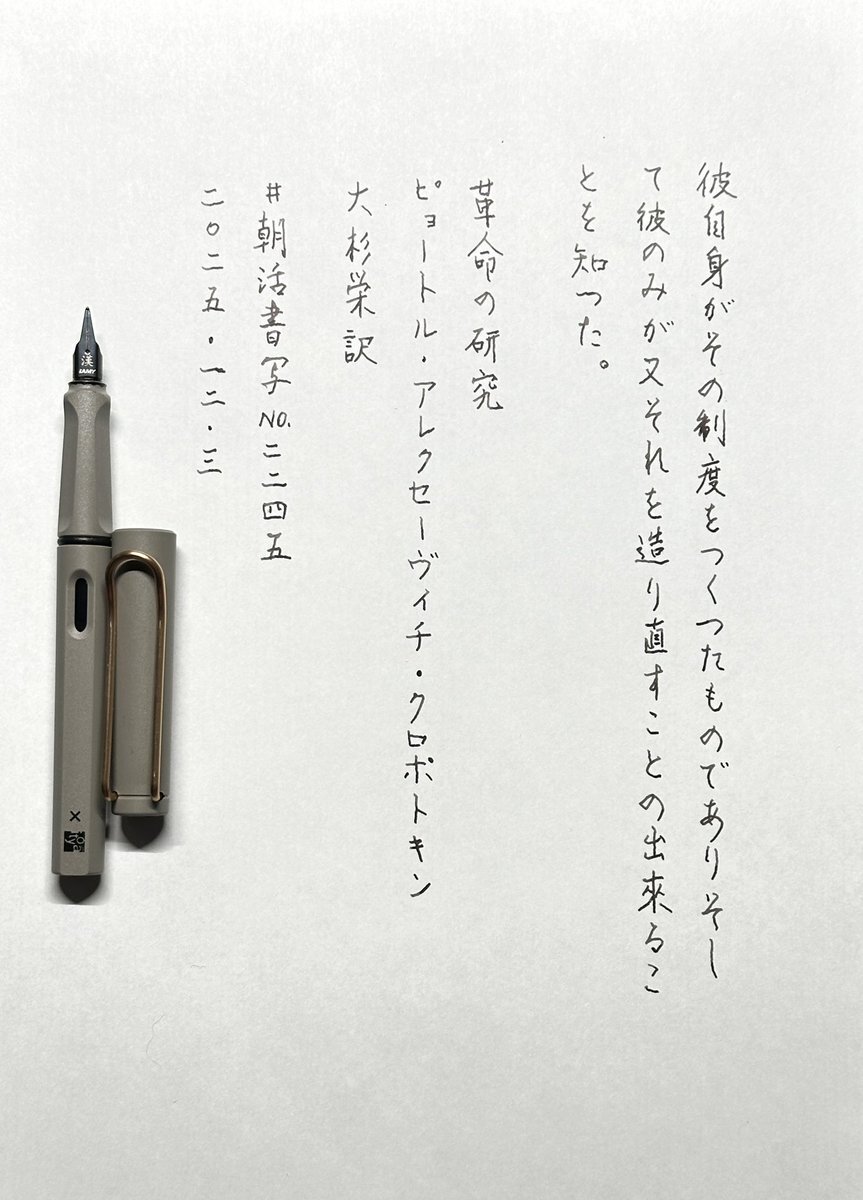 彼自身がその制度をつくつたものでありそし
て彼のみが又それを造り直すことの出來るこ
とを知つた。
革命の研究
ピョートル・アレクセーヴィチ・クロポトキン
大杉栄訳
#朝活書写NO.二二四五
二〇二五・一二・三
漢
LAMY
×